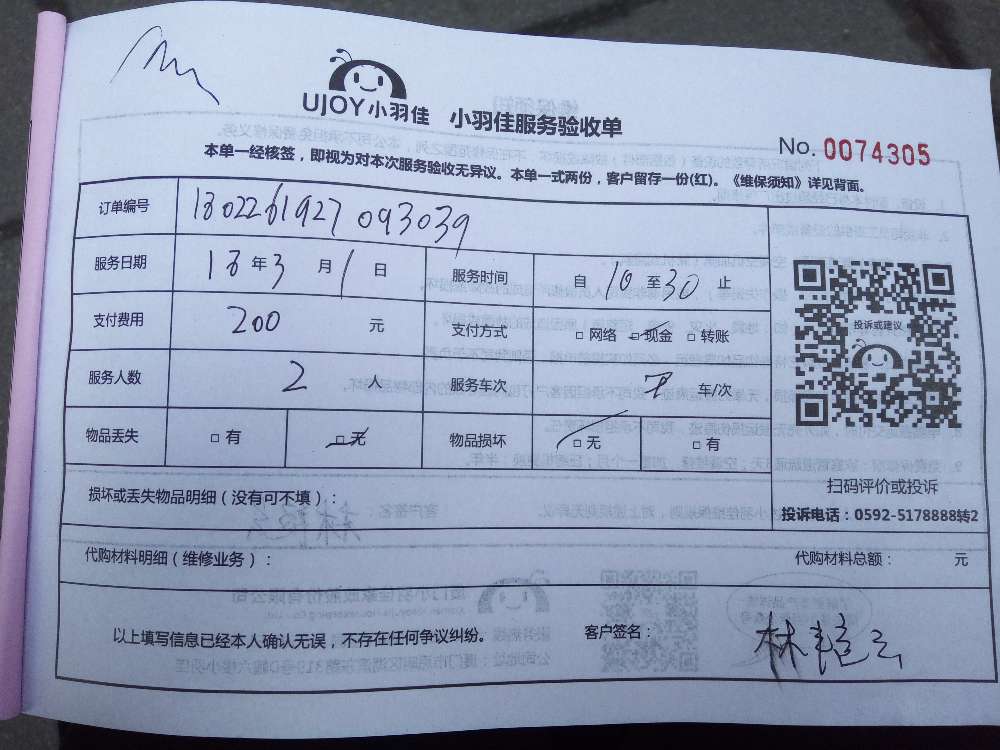 UJOY小羽佳 小羽佳服务验收单
No. 0074305
本单一经核签，即视为对本次服务验收无异议。本单一式两份，客户留存一份(红)。《维保须知》详见背面。
订单编号 1802261927093039
服务日期 18年3月1日 服务时间 自10至30止
支付费用 200元 支付方式 □网络 □现金 □转账
服务人数 2人 服务车次 车/次
物品丢失 □有 □无 物品损坏 □无 □有
投诉或建议
扫码评价或投诉
投诉电话：0592-5178888转2
损坏或丢失物品明细（没有可不填）：
代购材料明细（维修业务）： 代购材料总额： 元
以上填写信息已经本人确认无误，不存在任何争议纠纷。 客户签名： 林